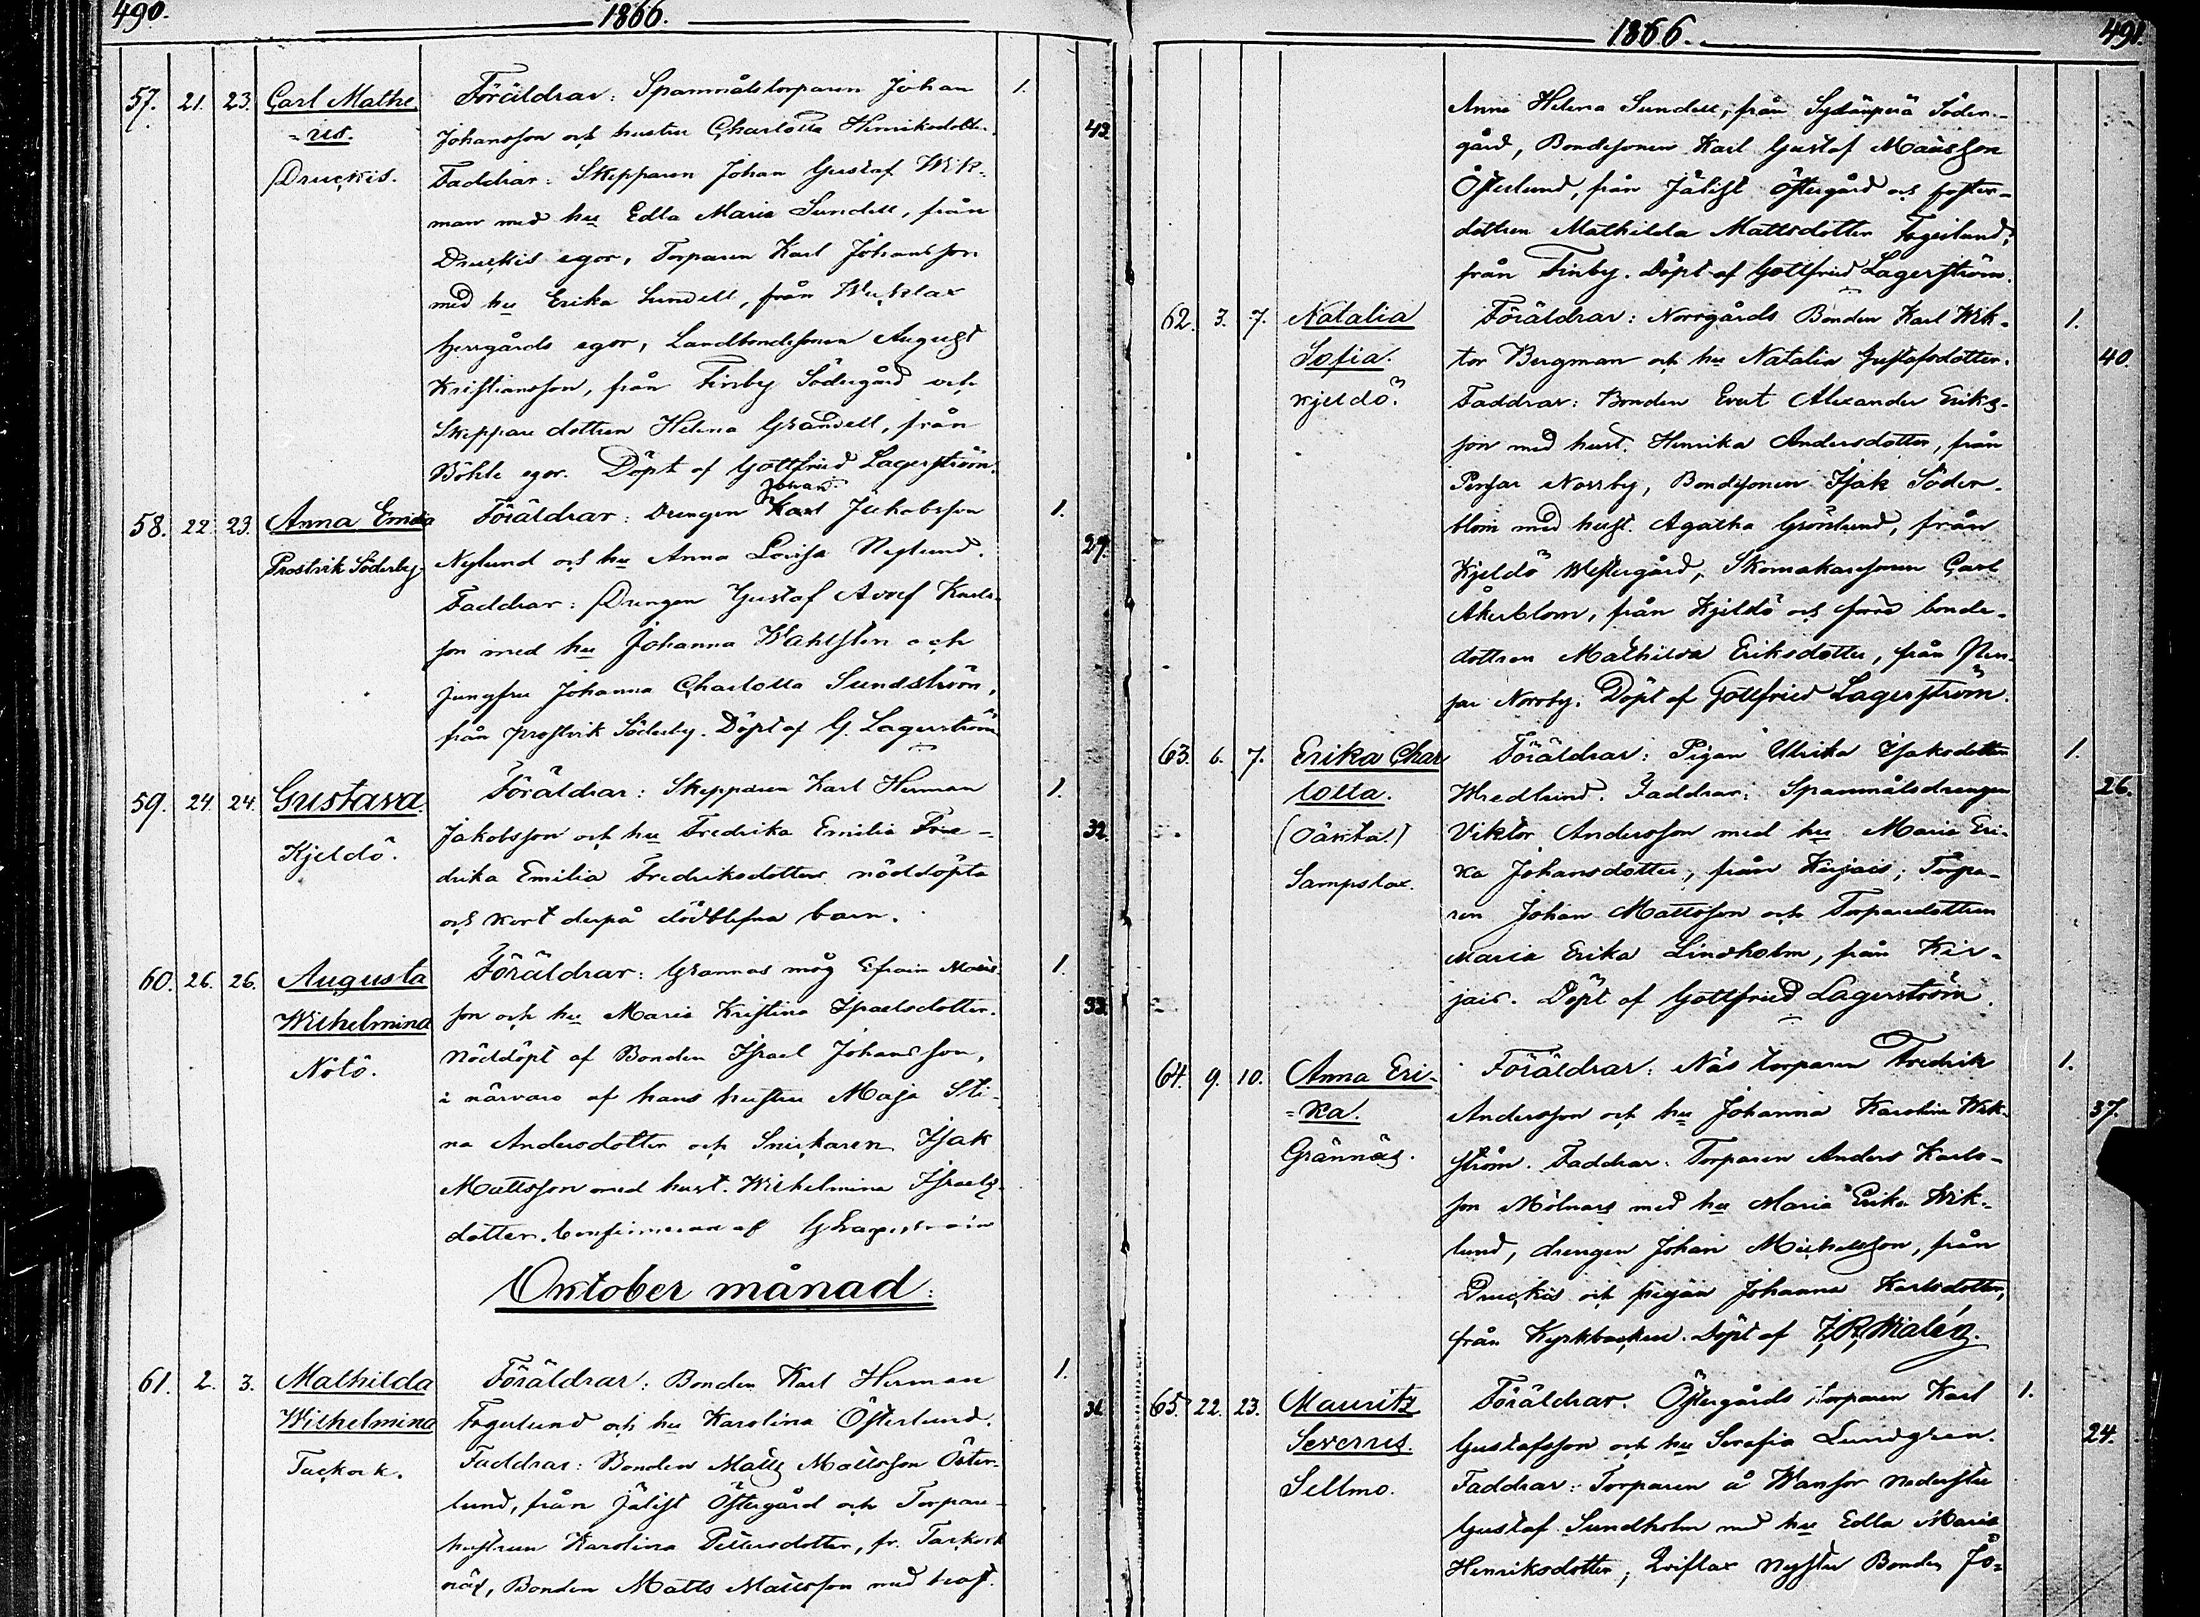 490.
1866.
57. 21. 23. Carl Mathe Föräldrar: Spannmålstorparen Johan 1.
=us. Johansson och hustru Charlotta Henriksdotter. 42.
Druckis. Faddrar: Skepparen Johan Gustaf Wik-
man med hu Edla Maria Sundell, från
Druckis egor, Torparen Karl Johansson
med hu Erika Sundell, från
herrgårds egor, Landbondesonen August
Kristiansson, från Finby Södergård och
Skeppare dottren Helena Grandell, från
Böhle egor. Döpt af Gottfried Lagerström.
Johan
58. 22. 23. Anna Emilia Föräldrar: Drengen Karl Jakobsson 1.
Prostvik Söderby. Nylund och hu Anna Lovisa Neglund. 27.
Faddrar: Drengen Gustaf Adolf Karls-
son med hu Johanna Wahlsten och
jungfru Johanna Charlotta Sundström,
från Prostvik Söderby. Döpt af G. Lagerström
59. 24. 24. Gustava. Föräldrar: Skepparen Karl Herman 1.
Kjeldö. Jakobsson och hu Fredrika Emilia Fre- 32.
drika Emilia Fredriksdotters nöddöpta
och kort derpå dödblefna barn.
60. 26. 26. Augusta Föräldrar: Grannas måg Efraim Matts 1.
Wilhelmina son och hu Maria Kristina Israelsdotter. 33.
Nötö. Nöddöpt af Bonden Israel Johansson,
i närvaro af hans hustru Maja Sti-
na Andersdotter och Snickaren Isak
Mattsson med hust. Wilhelmina Israels-
dotter. af G Lagerström
Oktober månad:
61. 2. 3. Mathilda Föräldrar: Bonden Karl Herman 1.
Wilhelmina Fagerlund och hu Karolina Österlund. 31.
Tackork. Faddrar: Bonden Matts Mattsson Öster-
lund, från Jälist Östergård och Torpare-
hustrun Karolina Pettersdotter, fr. Tackork
näs, Bonden Matts Mattsson med hust.
1866.
491.
Anna Helena Sundell, från Sydänperä Söder-
gård, Bondesonen Karl Gustaf Mattsson
Österlund, från Jälist Östergård och foster-
dottren Mathilda Mattsdotter Fagerlund,
från Finby. Döpt af Gottfried Lagerström.
62. 3. 7. Natalia Föräldrar: Norrgårds Bonden Karl Wik- 1.
Sofia. tor Bergman och hu Natalia Gustafsdotter. 40.
Kjeldö. Faddrar: Bonden Evert Alexander Eriks-
son med hust. Henrika Andersdotter, från
Pensar Norrby, Bondesonen Isak Söder-
blom med hust. Agatha Grönlund, från
Kjeldö Westergård, Skomakaresonen Carl
Åkerblom, från Kjeldö och förra bonde-
dottren Mathilda Eriksdotter, från Pen-
sar Norrby. Döpt af Gottfried Lagerström.
63. 6. 7. Erika Char Föräldrar: Pigan Ulrika Isaksdotter 1.
lotta. Wredlund. Faddrar: Spannmålsdrengen 26.
(Oäkta.) Viktor Andersson med hu Maria Eri-
Sampslax. ka Johansdotter, från Kirjais; Torpa-
ren Johan Mattsson och Torparedottren
Maria Erika Lindholm, från Kir-
jais. Döpt af Gottfried Lagerström.
64. 9. 10. Anna Eri- Föräldrar: Näs torparen Fredrik 1.
=ka. Andersson och hu Johanna Karolina Wik- 37.
Grännäs. ström. Faddrar: Torparen Anders Karls-
son Mölnars med hu Maria Erika Wik-
lund, drengen Johan Michelsson, från
Druckis och pigan Johanna Karlsdotter,
från Kyrkbacken. Döpt af J. R. Malén.
65. 22. 23. Mauritz Föräldrar. Östergårds torparen Karl 1.
Severus. Gustafsson och hu Serafia Lundgren. 24.
Sellmo. Faddrar: Torparen å Wansor Nederstu
Gustaf Sundholm med hu Edla Maria
Henriksdotter, Qviflax Nystu Bonden Jo-